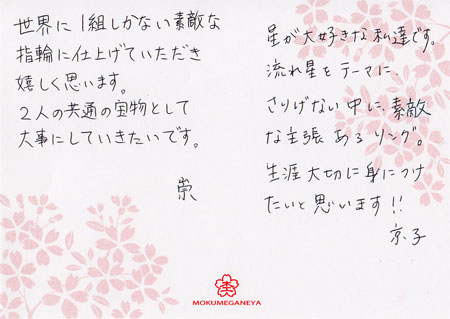 世界に1組しかない素敵な
指輪に仕上げていただき
嬉しく思います。
2人の共通の宝物として
大事にしていきたいです。
崇
星が大好きな私達です。
流れ星をテーマに、
さりげない中に、素敵
な主張あるリング。
生涯大切に身につけ
たいと思います!!
京子
MOKUMEGANEYA